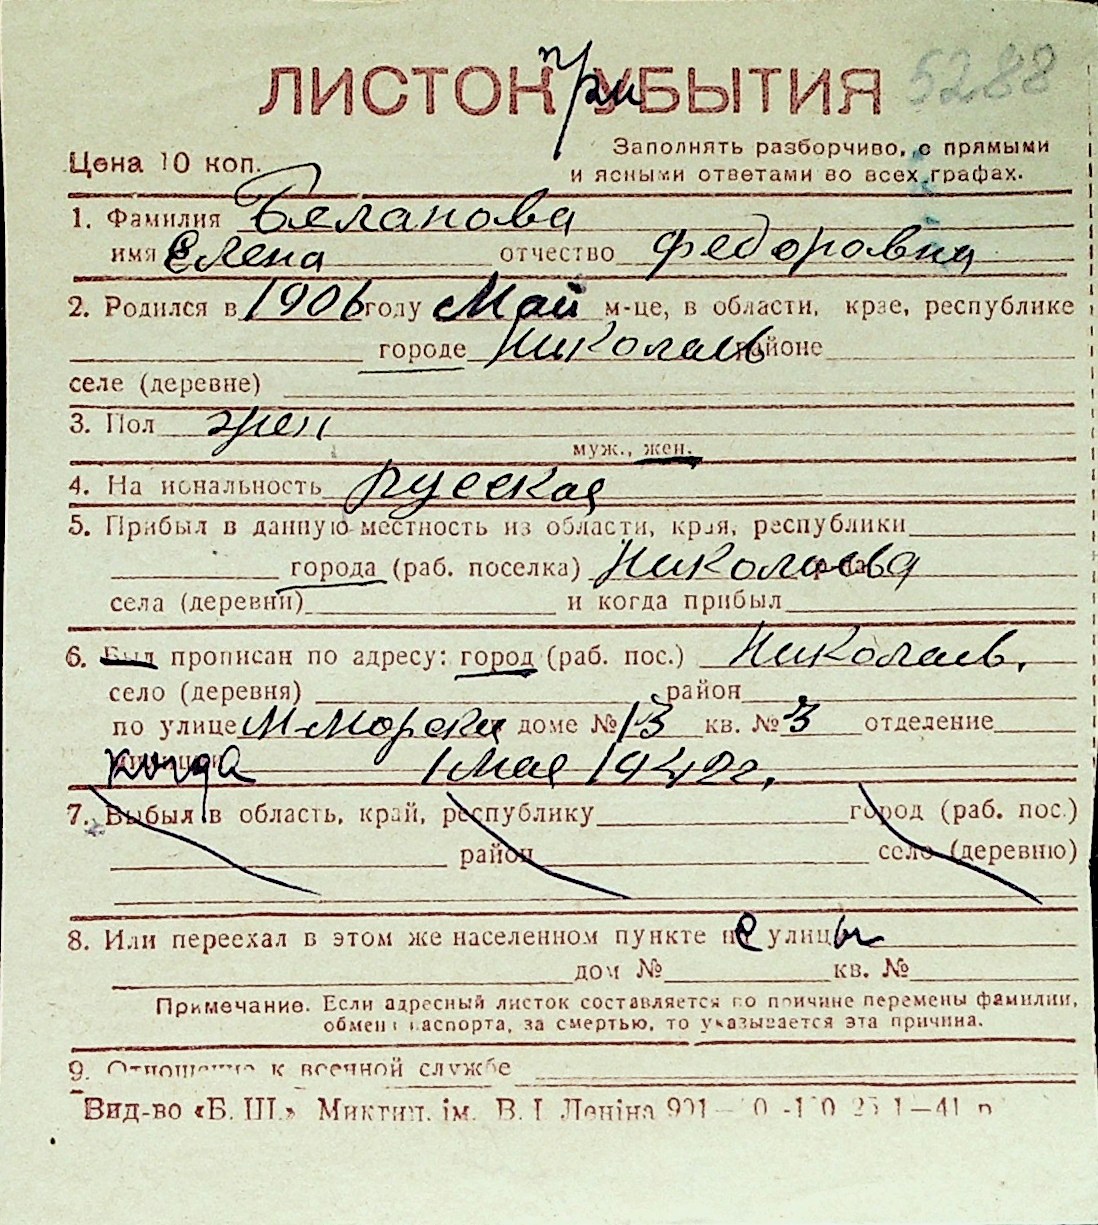 5288
ЛИСТОК при УБЫТИЯ
Цена 10 коп.
Заполнять разборчиво, с прямыми
и ясными ответами во всех графах.
1. Фамилия Беланова
имя Елена отчество Федоровна
2. Родился в 1906 году Май м-це, в области, крае, республике
городе Николаев районе
селе (деревне)
3. Пол жен
муж., жен.
4. Национальность русская
5. Прибыл в данную местность из области, края, республики
города (раб. поселка) Николаева
села (деревни) и когда прибыл
6. Был прописан по адресу: город (раб. пос.) Николаев.
село (деревня) район
по улице М-Морска доме № 13 кв. № 3 отделение
когда 1 Мая 1942г.
7. Выбыл в область, край, республику город (раб. пос.)
район село (деревню)
8. Или переехал в этом же населенном пункте не улицы
дом № кв. №
Примечание. Если адресный листок составляется по причине перемены фамилии,
обмена паспорта, за смертью, то указывается эта причина.
9. Отношение к военной службе
Вид-во «Б. Ш.» Миктип. ім. В. І. Леніна